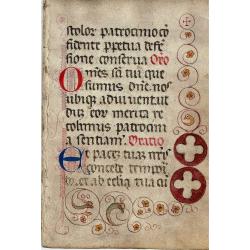 stolor patrocinio cō
fidente ppetua defē
sione conserva Oro
Omēs scī tui que
sumus dne nos
ubique adiuvent ut
du3 eor merita re
colimus patrocini
a sentiam⁹. Oratio
Et pacē tuā nr̄is
concede tempori
b3. et ab ecl̄ia tua cū